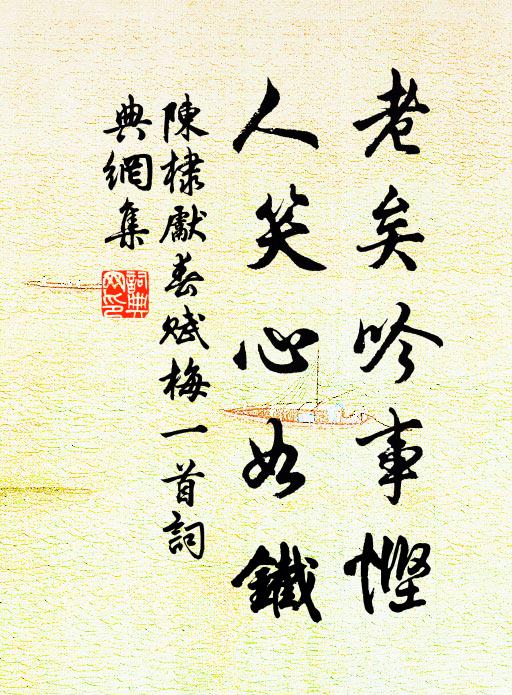 老矣吟事慳
人笑心如鐵
陳棣獻壽賦梅一首詞
典網集
詞典網印